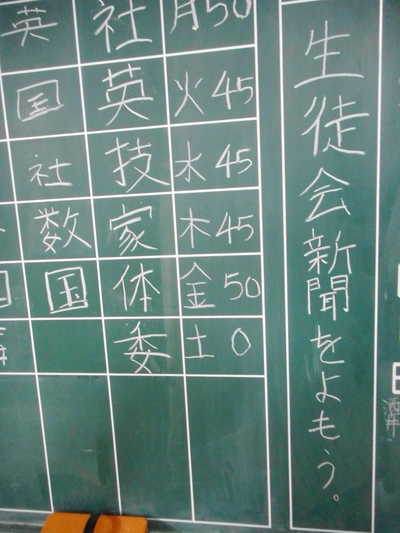 生徒会新聞をよもう。
月50 社 英
火45 英 国
水45 技 社
木45 家 数
金50 体 国
土0 委